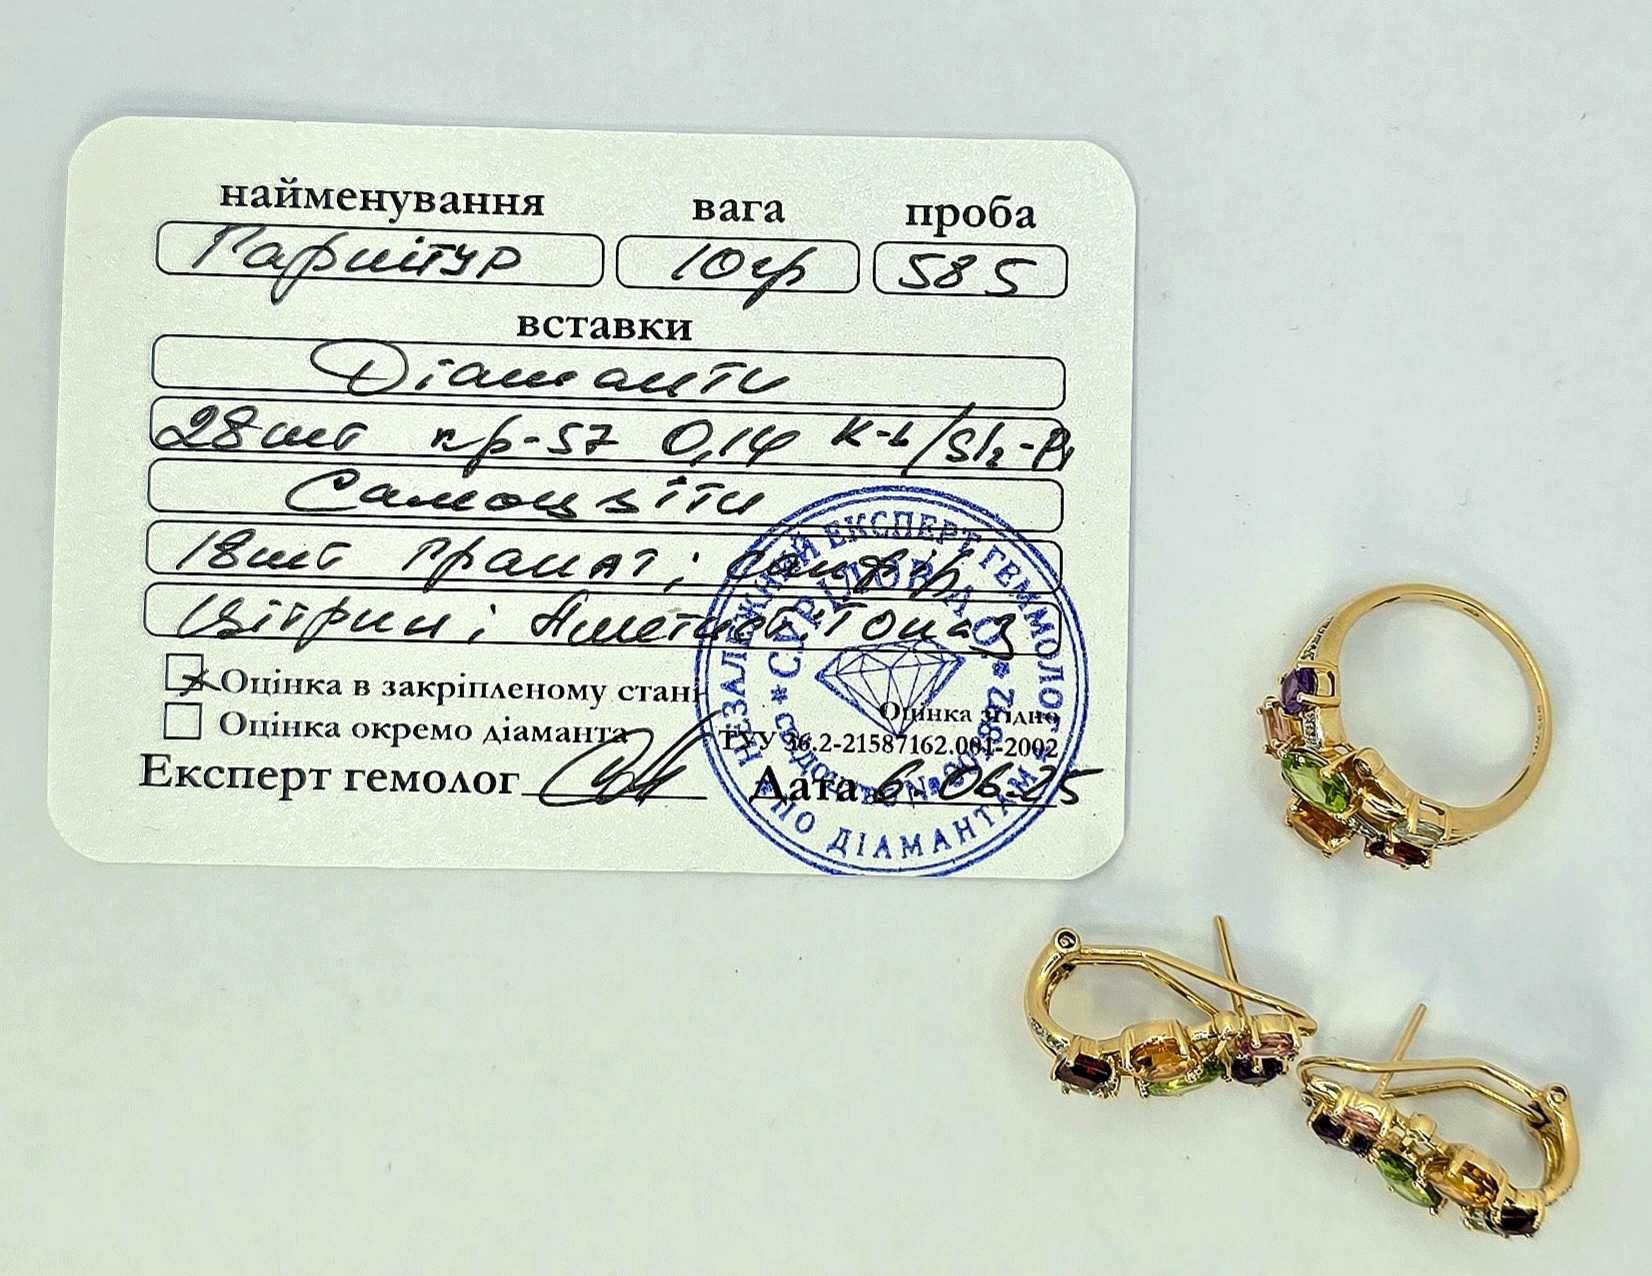 найменування вага проба
Гарнітур 10гр 585
вставки
Діаманти
28шт кр-57 0,14 К-L/SI₂-P₁
Самоцвіти
18шт Гранат; Сапфір
Цітрин; Аметист; Топаз
Оцінка в закріпленому стані
Оцінка окремо діаманта
Оцінка згідно
ТУУ 36.2-21587162.001-2002
Експерт гемолог Дата 6.06.25
НЕЗАЛЕЖНИЙ ЕКСПЕРТ ГЕММОЛОГ ПО ДІАМАНТАМ